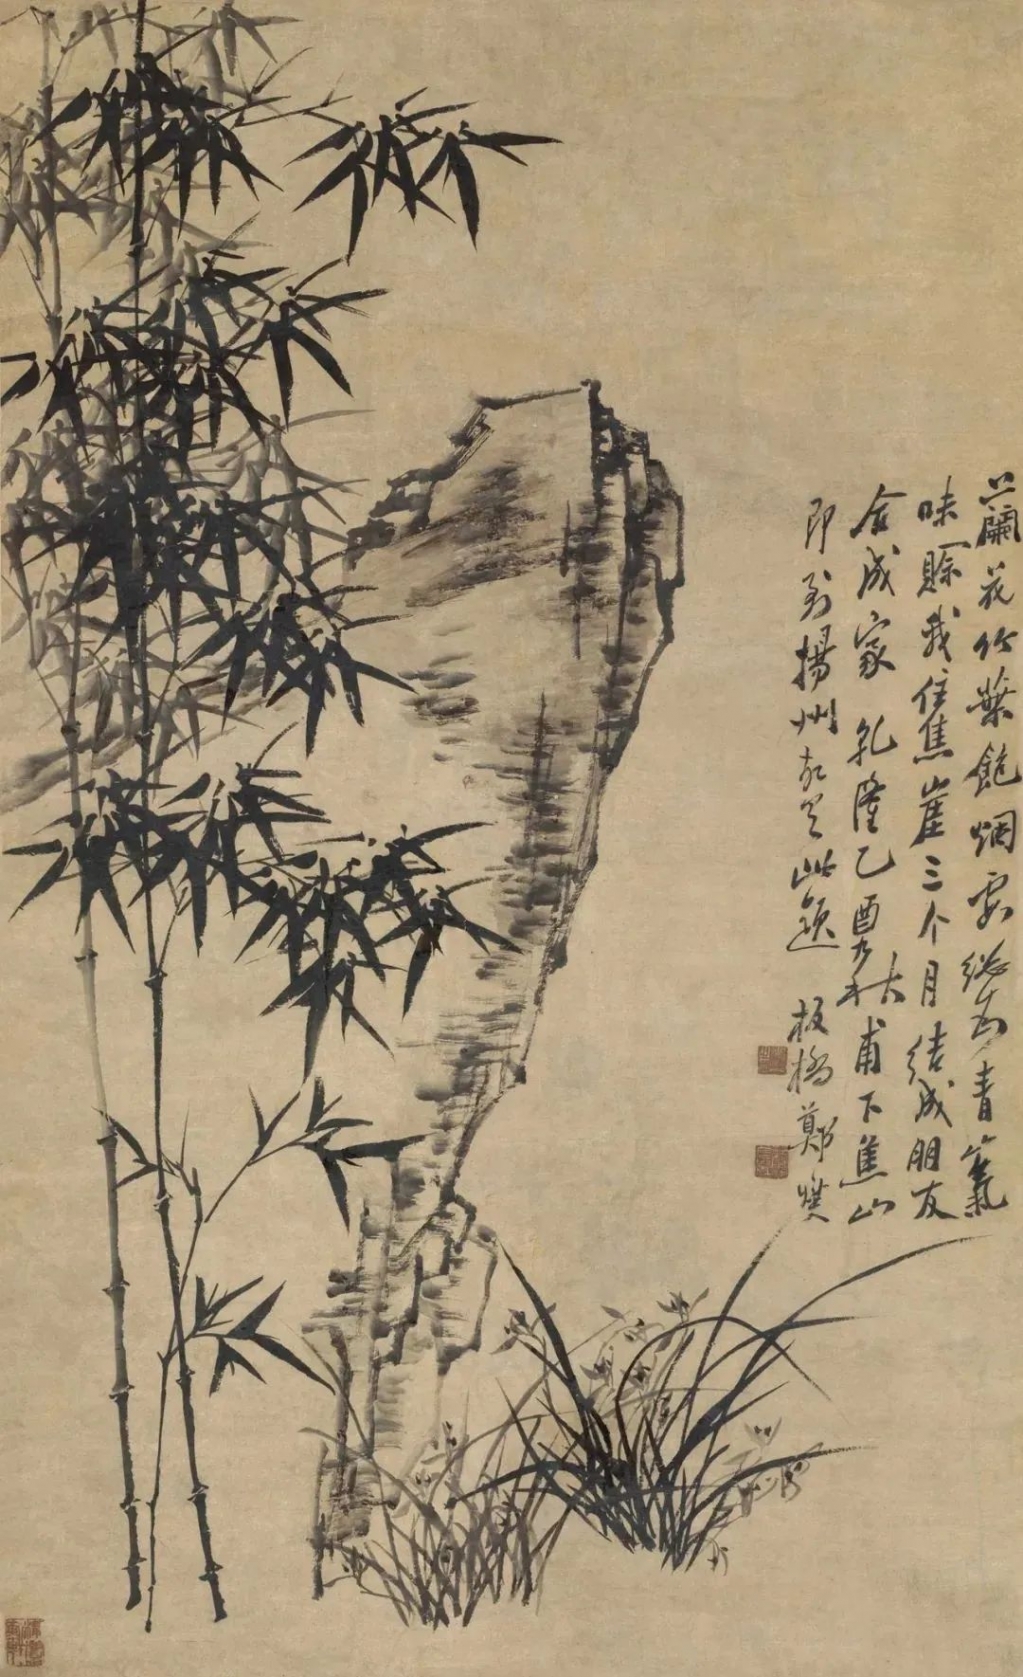 蘭花竹葉飽烟霞總為青山氣
味賒我住焦崖三个月結成朋友
合成家 乾隆乙酉九秋甫下焦山
即到揚州 此題 板橋鄭燮